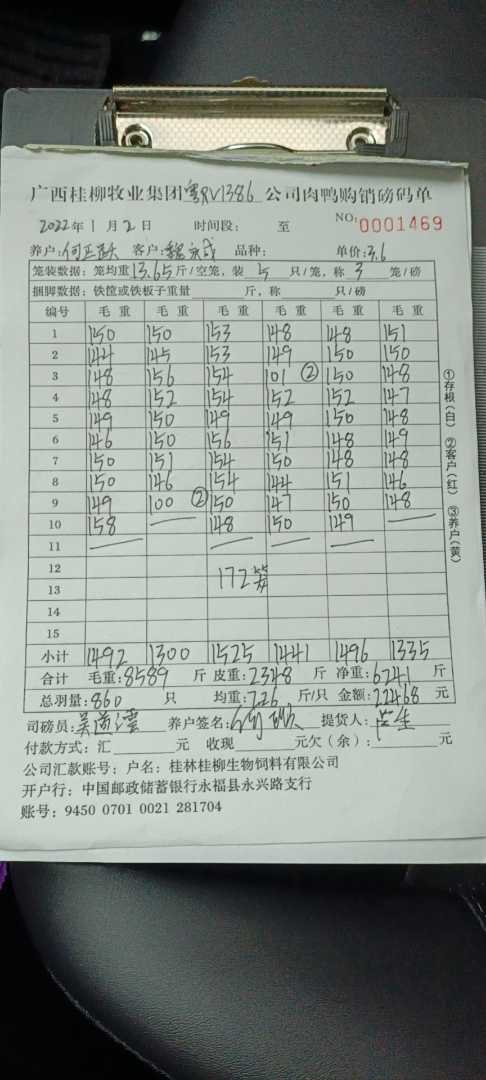 广西桂柳牧业集团粤RV1386公司肉鸭购销磅码单
2022年1月2日 时间段: 至 NO:0001469
养户: 客户: 品种: 单价:3.6
笼装数据: 笼均重13.65斤/空笼, 装5只/笼, 称3笼/磅
捆脚数据: 铁筐或铁板子重量 斤, 称 只/磅
编号 毛重 毛重 毛重 毛重 毛重 毛重
1 150 150 153 148 148 151
2 144 145 153 149 150 150
3 148 156 154 101② 150 148
4 148 152 154 152 152 147
5 149 150 149 149 150 148
6 146 150 156 151 148 149
7 150 151 154 150 148 148
8 150 146 154 144 151 146
9 149 100② 150 147 150 148
10 158 — 148 150 149 —
11 — — — —
12
13 172笼
14
15
小计 1492 1300 1525 1441 1496 1335
合计 毛重:8589斤 皮重:2348斤 净重:6241斤
总羽量:860只 均重:7.26斤/只 金额:22468元
司磅员: 养户签名: 提货人:
付款方式: 汇 元 收现 元欠(余): 元
公司汇款账号: 户名: 桂林桂柳生物饲料有限公司
开户行: 中国邮政储蓄银行永福县永兴路支行
账号: 9450 0701 0021 281704
①存根(白) ②客户(红) ③养户(黄)